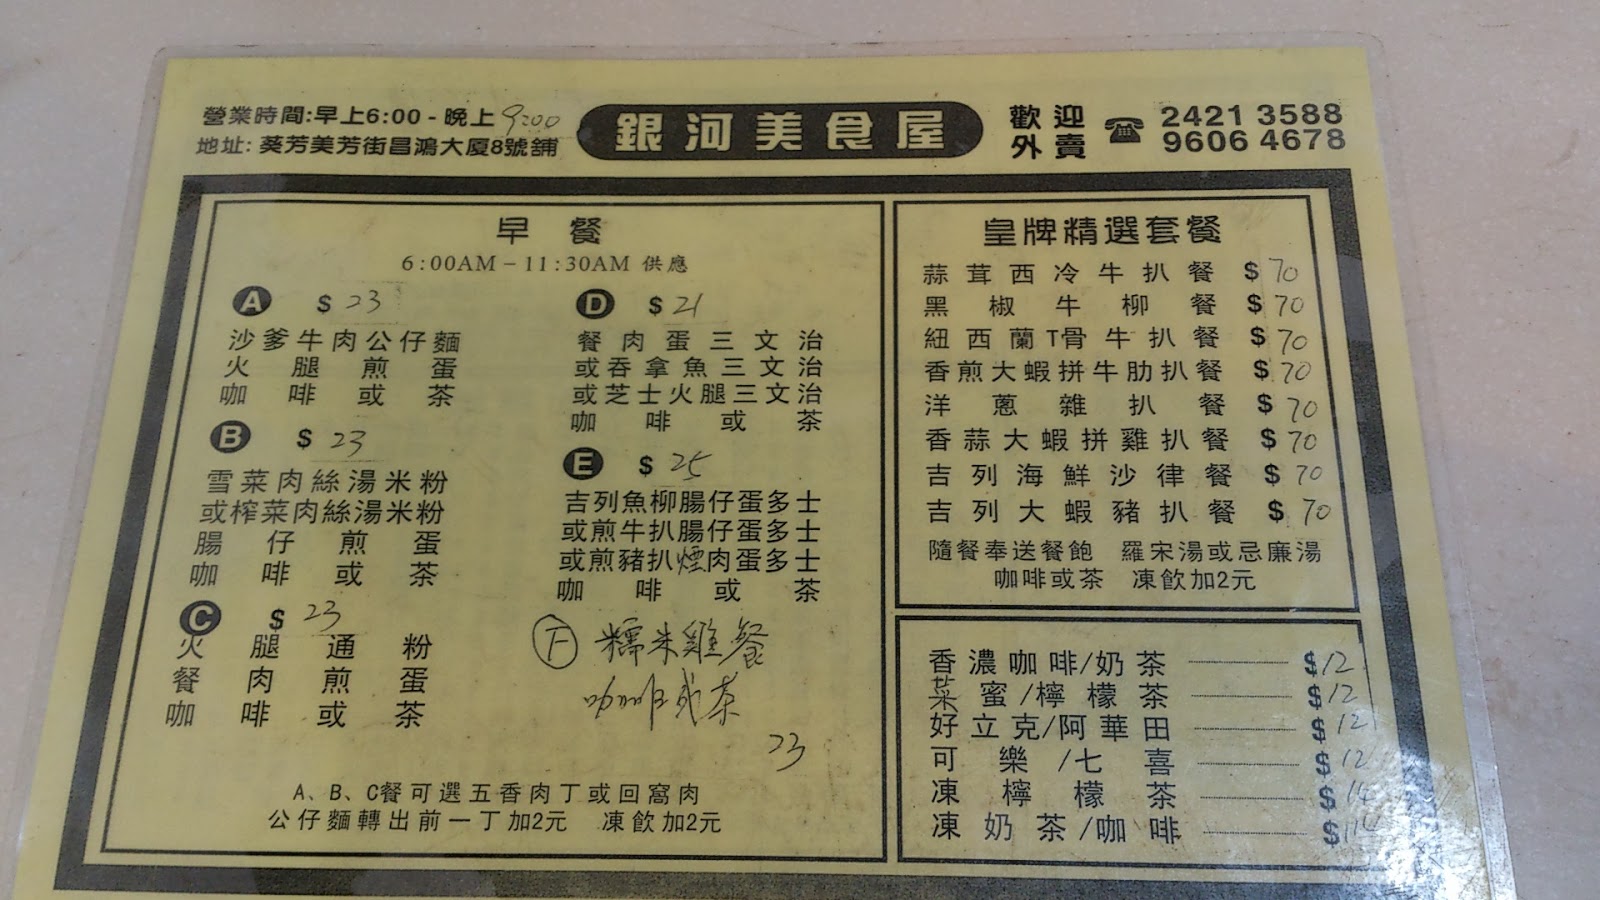 營業時間:早上6:00 - 晚上9:00
地址: 葵芳美芳街昌鴻大廈8號舖
銀河美食屋
歡迎外賣 ☎ 2421 3588
9606 4678
早餐
6:00AM – 11:30AM 供應
A $ 23
沙爹牛肉公仔麵
火腿煎蛋
咖啡或茶
B $ 23
雪菜肉絲湯米粉
或榨菜肉絲湯米粉
腸仔煎蛋
咖啡或茶
C $ 23
火腿通粉
餐肉煎蛋
咖啡或茶
D $ 21
餐肉蛋三文治
或吞拿魚三文治
或芝士火腿三文治
咖啡或茶
E $ 25
吉列魚柳腸仔蛋多士
或煎牛扒腸仔蛋多士
或煎豬扒煙肉蛋多士
咖啡或茶
F 糯米雞餐
咖啡或茶
23
A、B、C餐可選五香肉丁或回窩肉
公仔麵轉出前一丁加2元 凍飲加2元
皇牌精選套餐
蒜茸西冷牛扒餐 $ 70
黑椒牛柳餐 $ 70
紐西蘭T骨牛扒餐 $ 70
香煎大蝦拼牛肋扒餐 $ 70
洋蔥雜扒餐 $ 70
香蒜大蝦拼雞扒餐 $ 70
吉列海鮮沙律餐 $ 70
吉列大蝦豬扒餐 $ 70
隨餐奉送餐飽 羅宋湯或忌廉湯
咖啡或茶 凍飲加2元
香濃咖啡/奶茶 $ 12
菜蜜/檸檬茶 $ 12
好立克/阿華田 $ 12
可樂/七喜 $ 12
凍檸檬茶 $ 14
凍奶茶/咖啡 $ 14